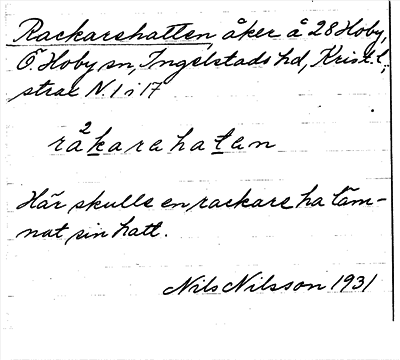 Rackarshatten åker å 28 Hoby,
Ö. Hoby sn, Ingelstads hd, Krist. l;
strax N. 1 i 17
rå²karahatan
Här skulle en rackare ha läm-
nat sin hatt.
Nils Nilsson 1931